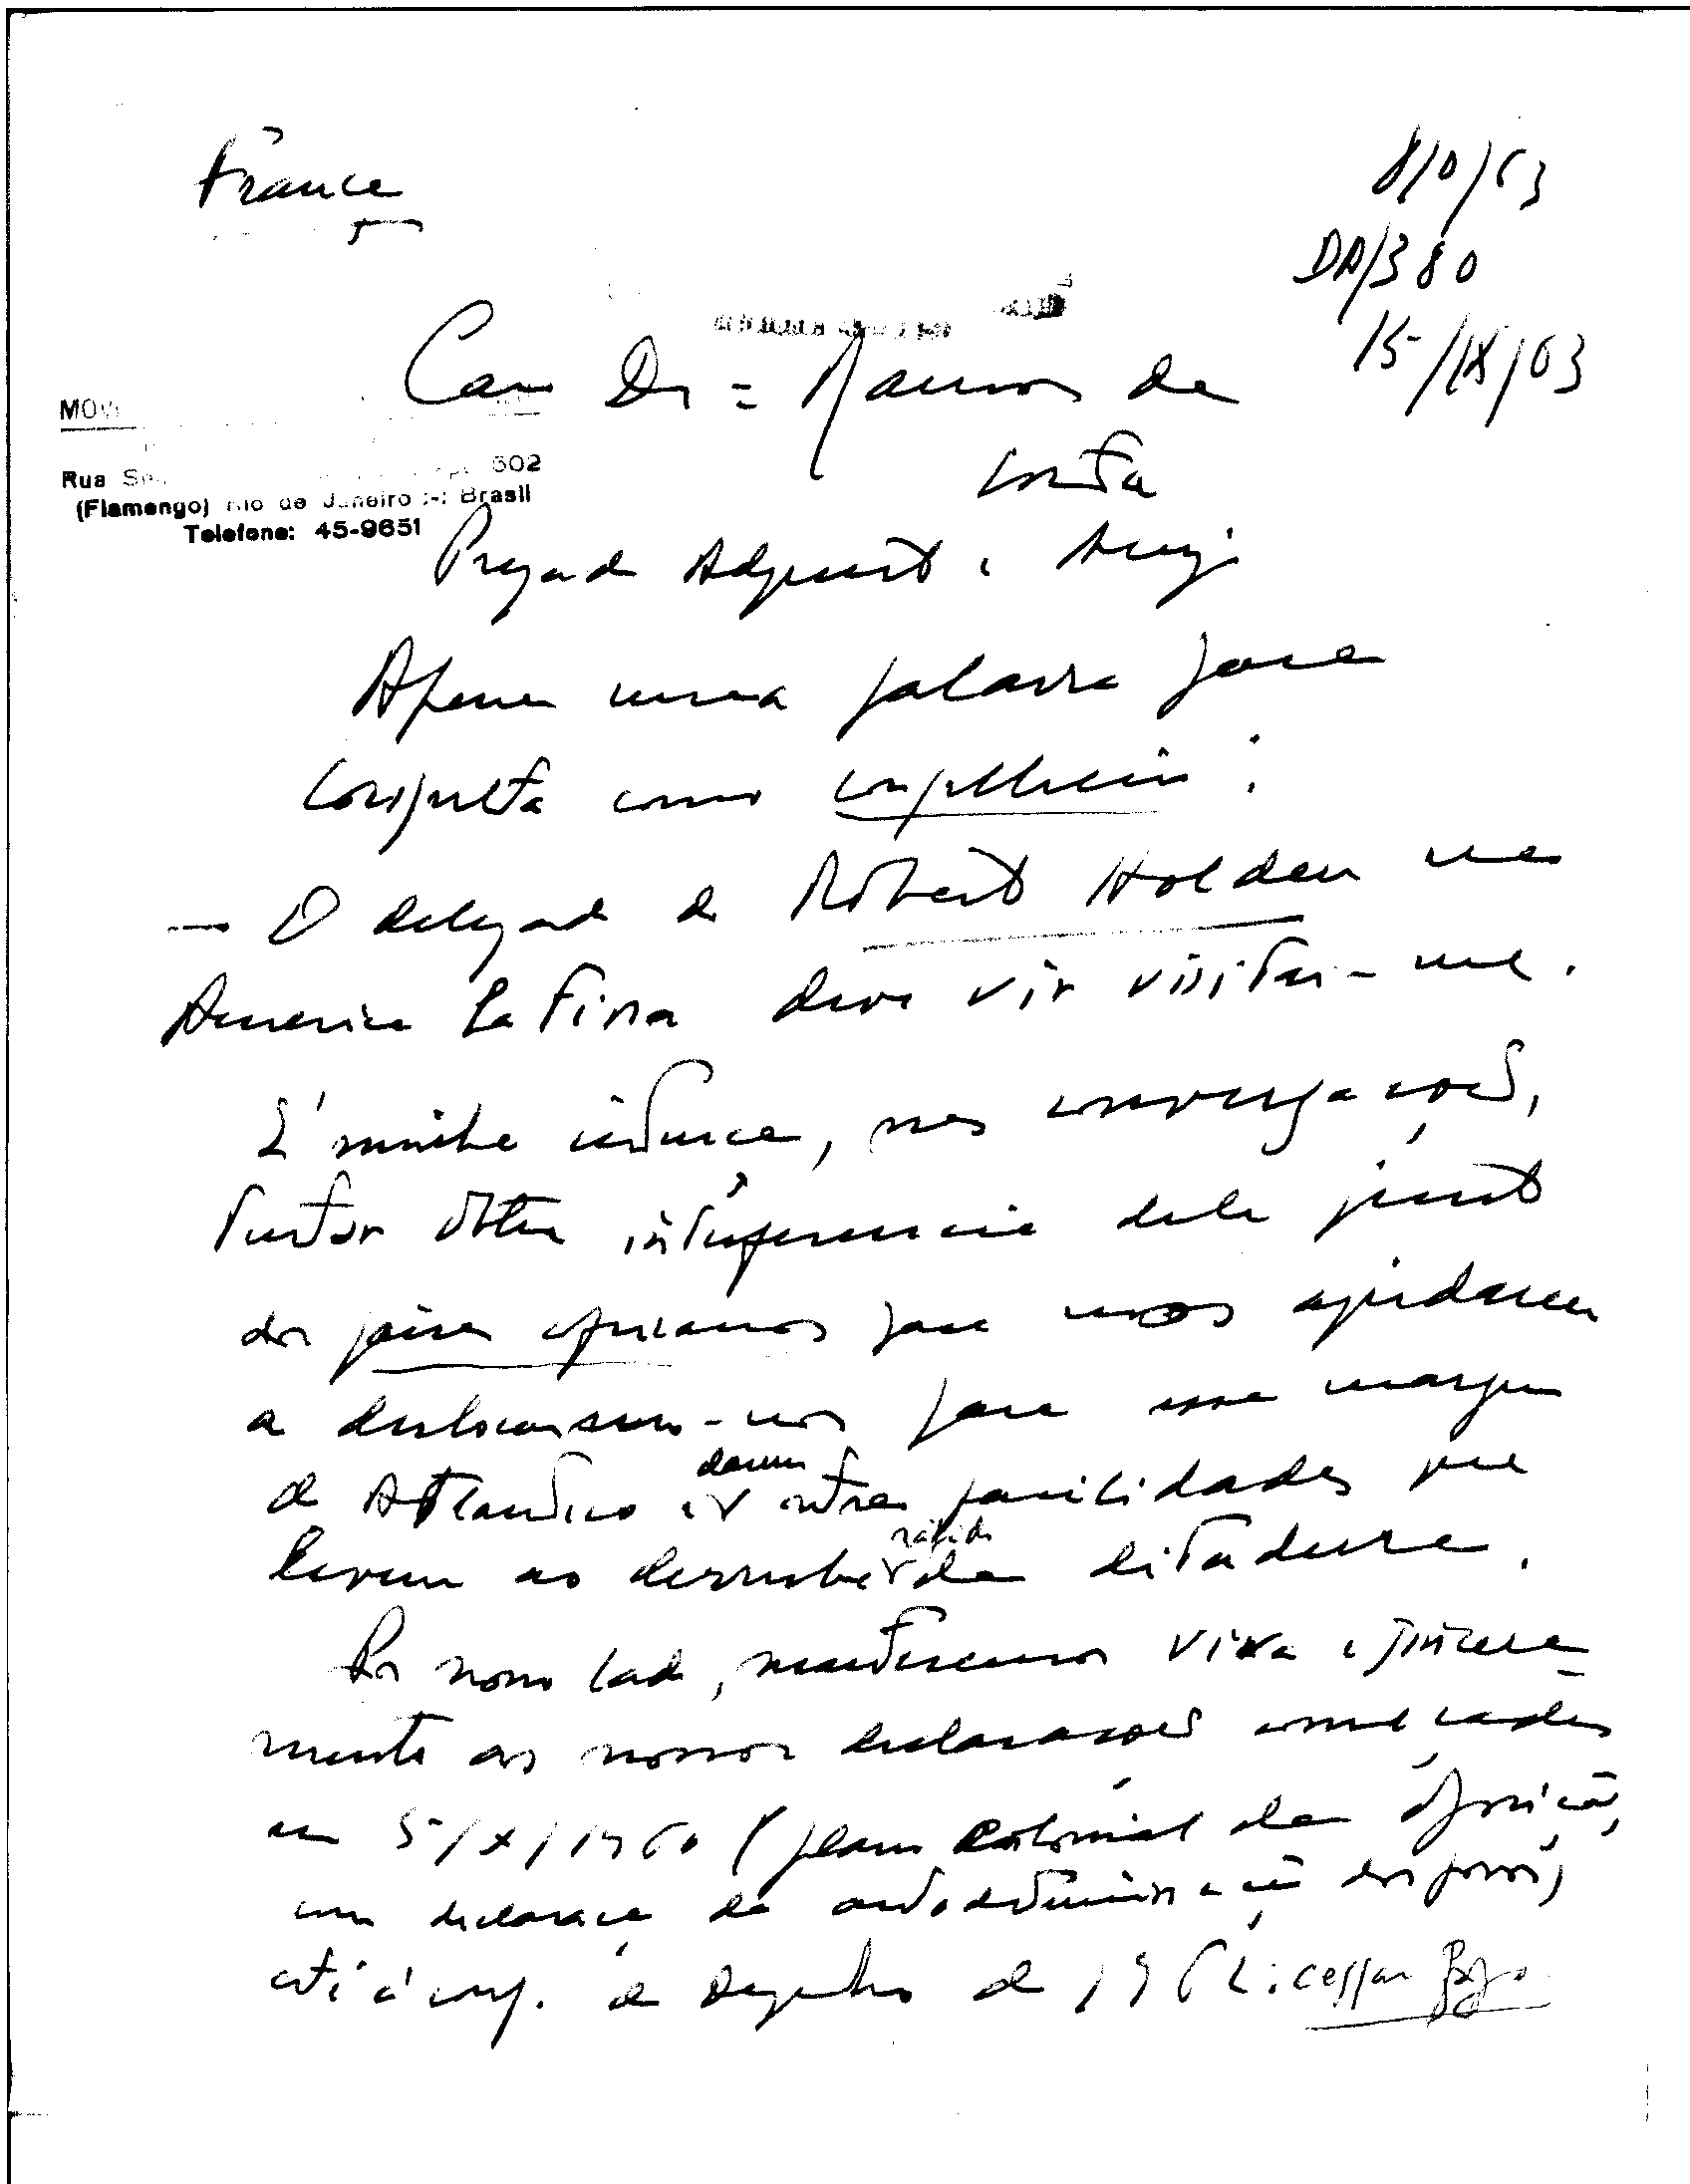 France
8/0/63
DA/380
15-/IX/63
Caro Dr = Ramos da
Costa
MOV
Rua Se 502
(Flamengo) Rio de Janeiro :-: Brasil
Telefone: 45-9651
Prezado Adjunto e Amigo
Apenas uma palavra para
consulta como conselheiro:
— O delegado de Robert Holden na
America Latina deve vir visitar-me.
É minha ideia, nas conversações,
tentar obter interferencia dele junto
dos paises africanos para nos ajudarem
a deslocarem-nos para essa margem
do Atlantico e darem outras facilidades que
levem ao derrube rápido da ditadura.
Por nosso lado, manteremos viva e sincera-
mente as nossas declarações começadas
em 5/X/1960 (plano Colonial da Oposição,
com declaração da autodeterminação dos povos)
até á conf. de Dezembro de 1962: cessar fogo